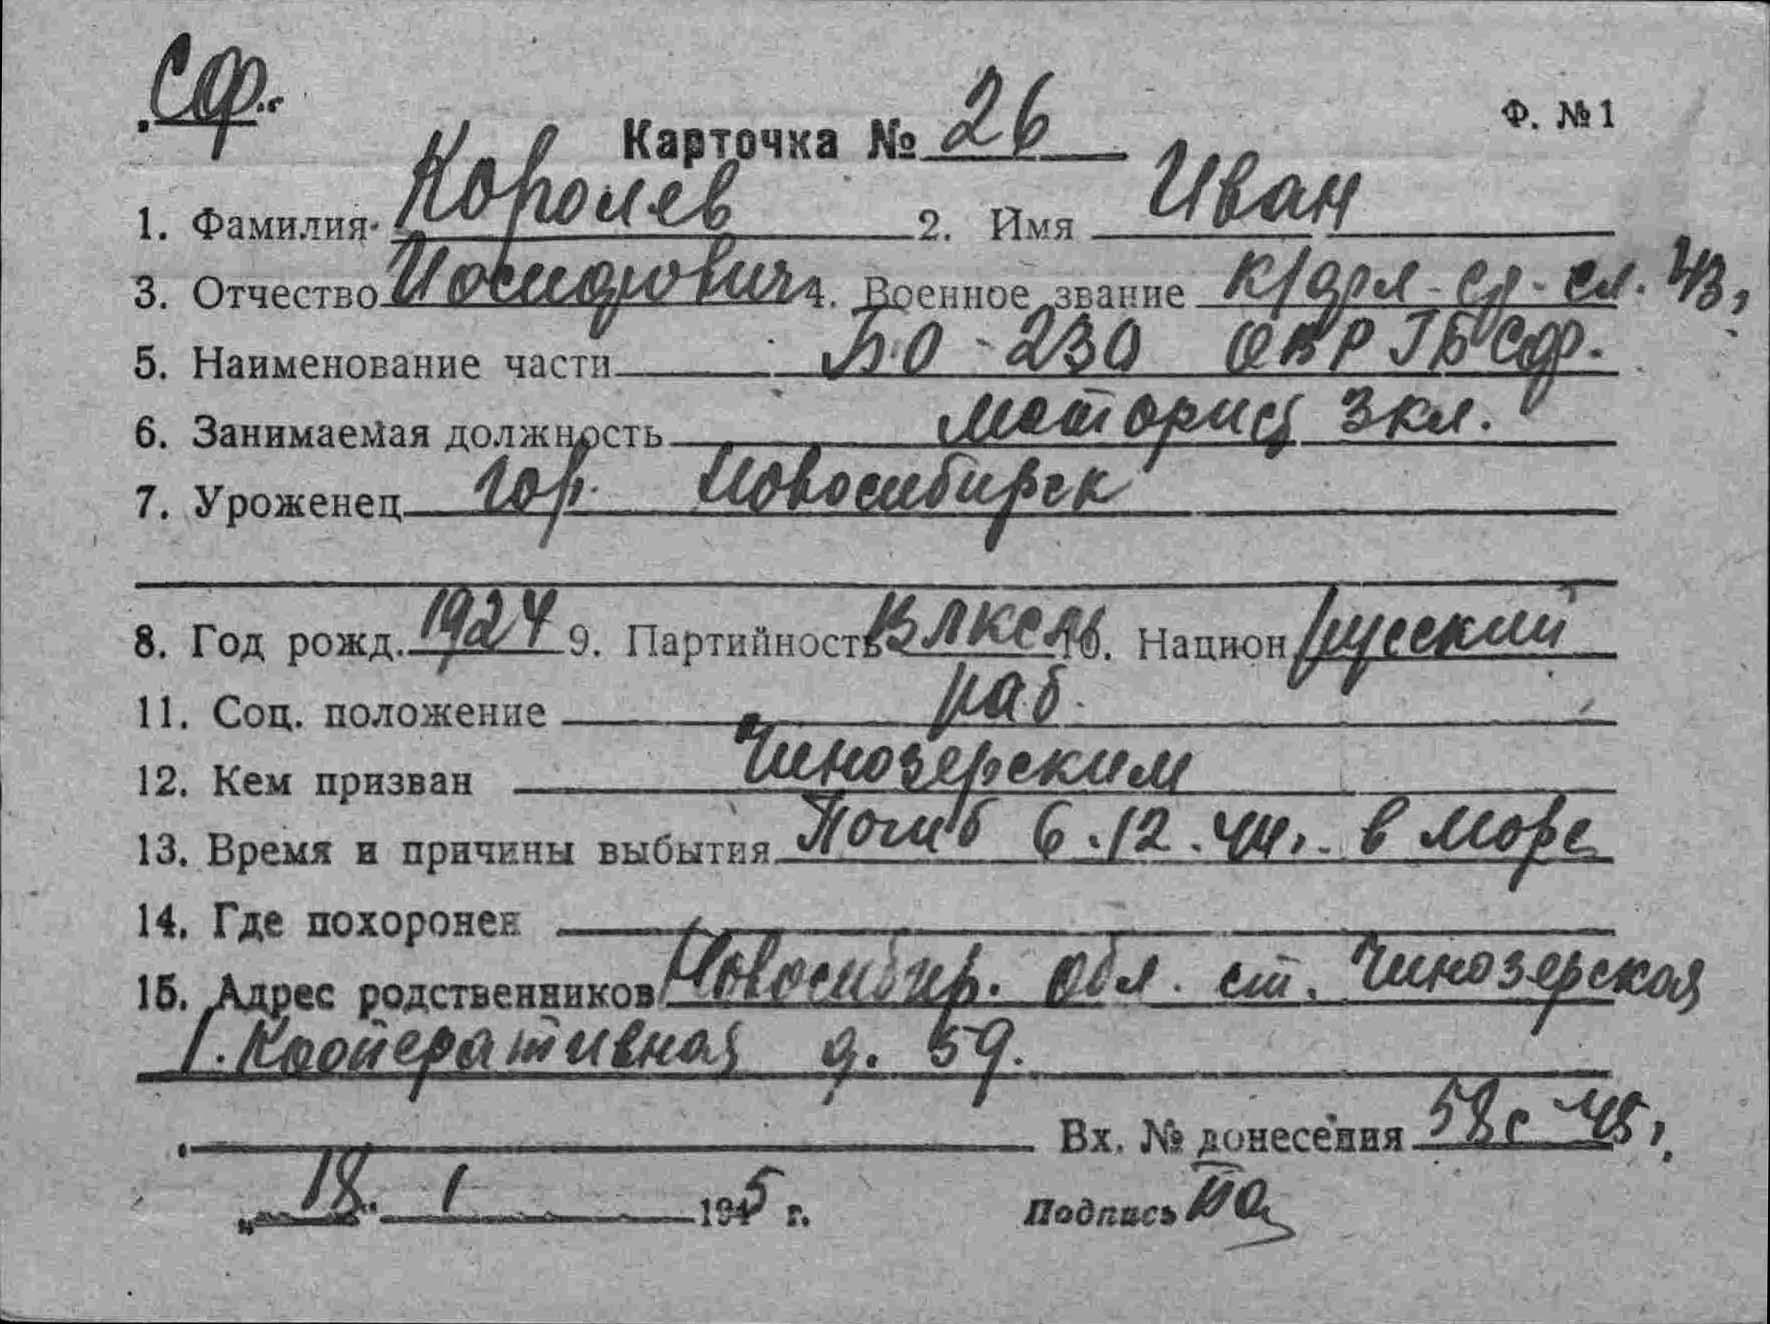 СФ.
Карточка № 26
Ф. № 1
1. Фамилия Королев 2. Имя Иван
3. Отчество Иосифович 4. Военное звание к/фл - ср. сл. 43г
5. Наименование части БО - 230 ОВР ГБ СФ.
6. Занимаемая должность моторист 3 кл.
7. Уроженец гор. Новосибирск
8. Год рожд. 1924 9. Партийность ВЛКСМ 10. Национ русский
11. Соц. положение раб.
12. Кем призван Чинозерским
13. Время и причины выбытия Погиб 6.12.44г. в море
14. Где похоронен
15. Адрес родственников Новосибир. обл. ст. Чинозерская
1. Кооперативная д. 59.
Вх. № донесения 58с 45г.
„18“ 1 1945 г. Подпись